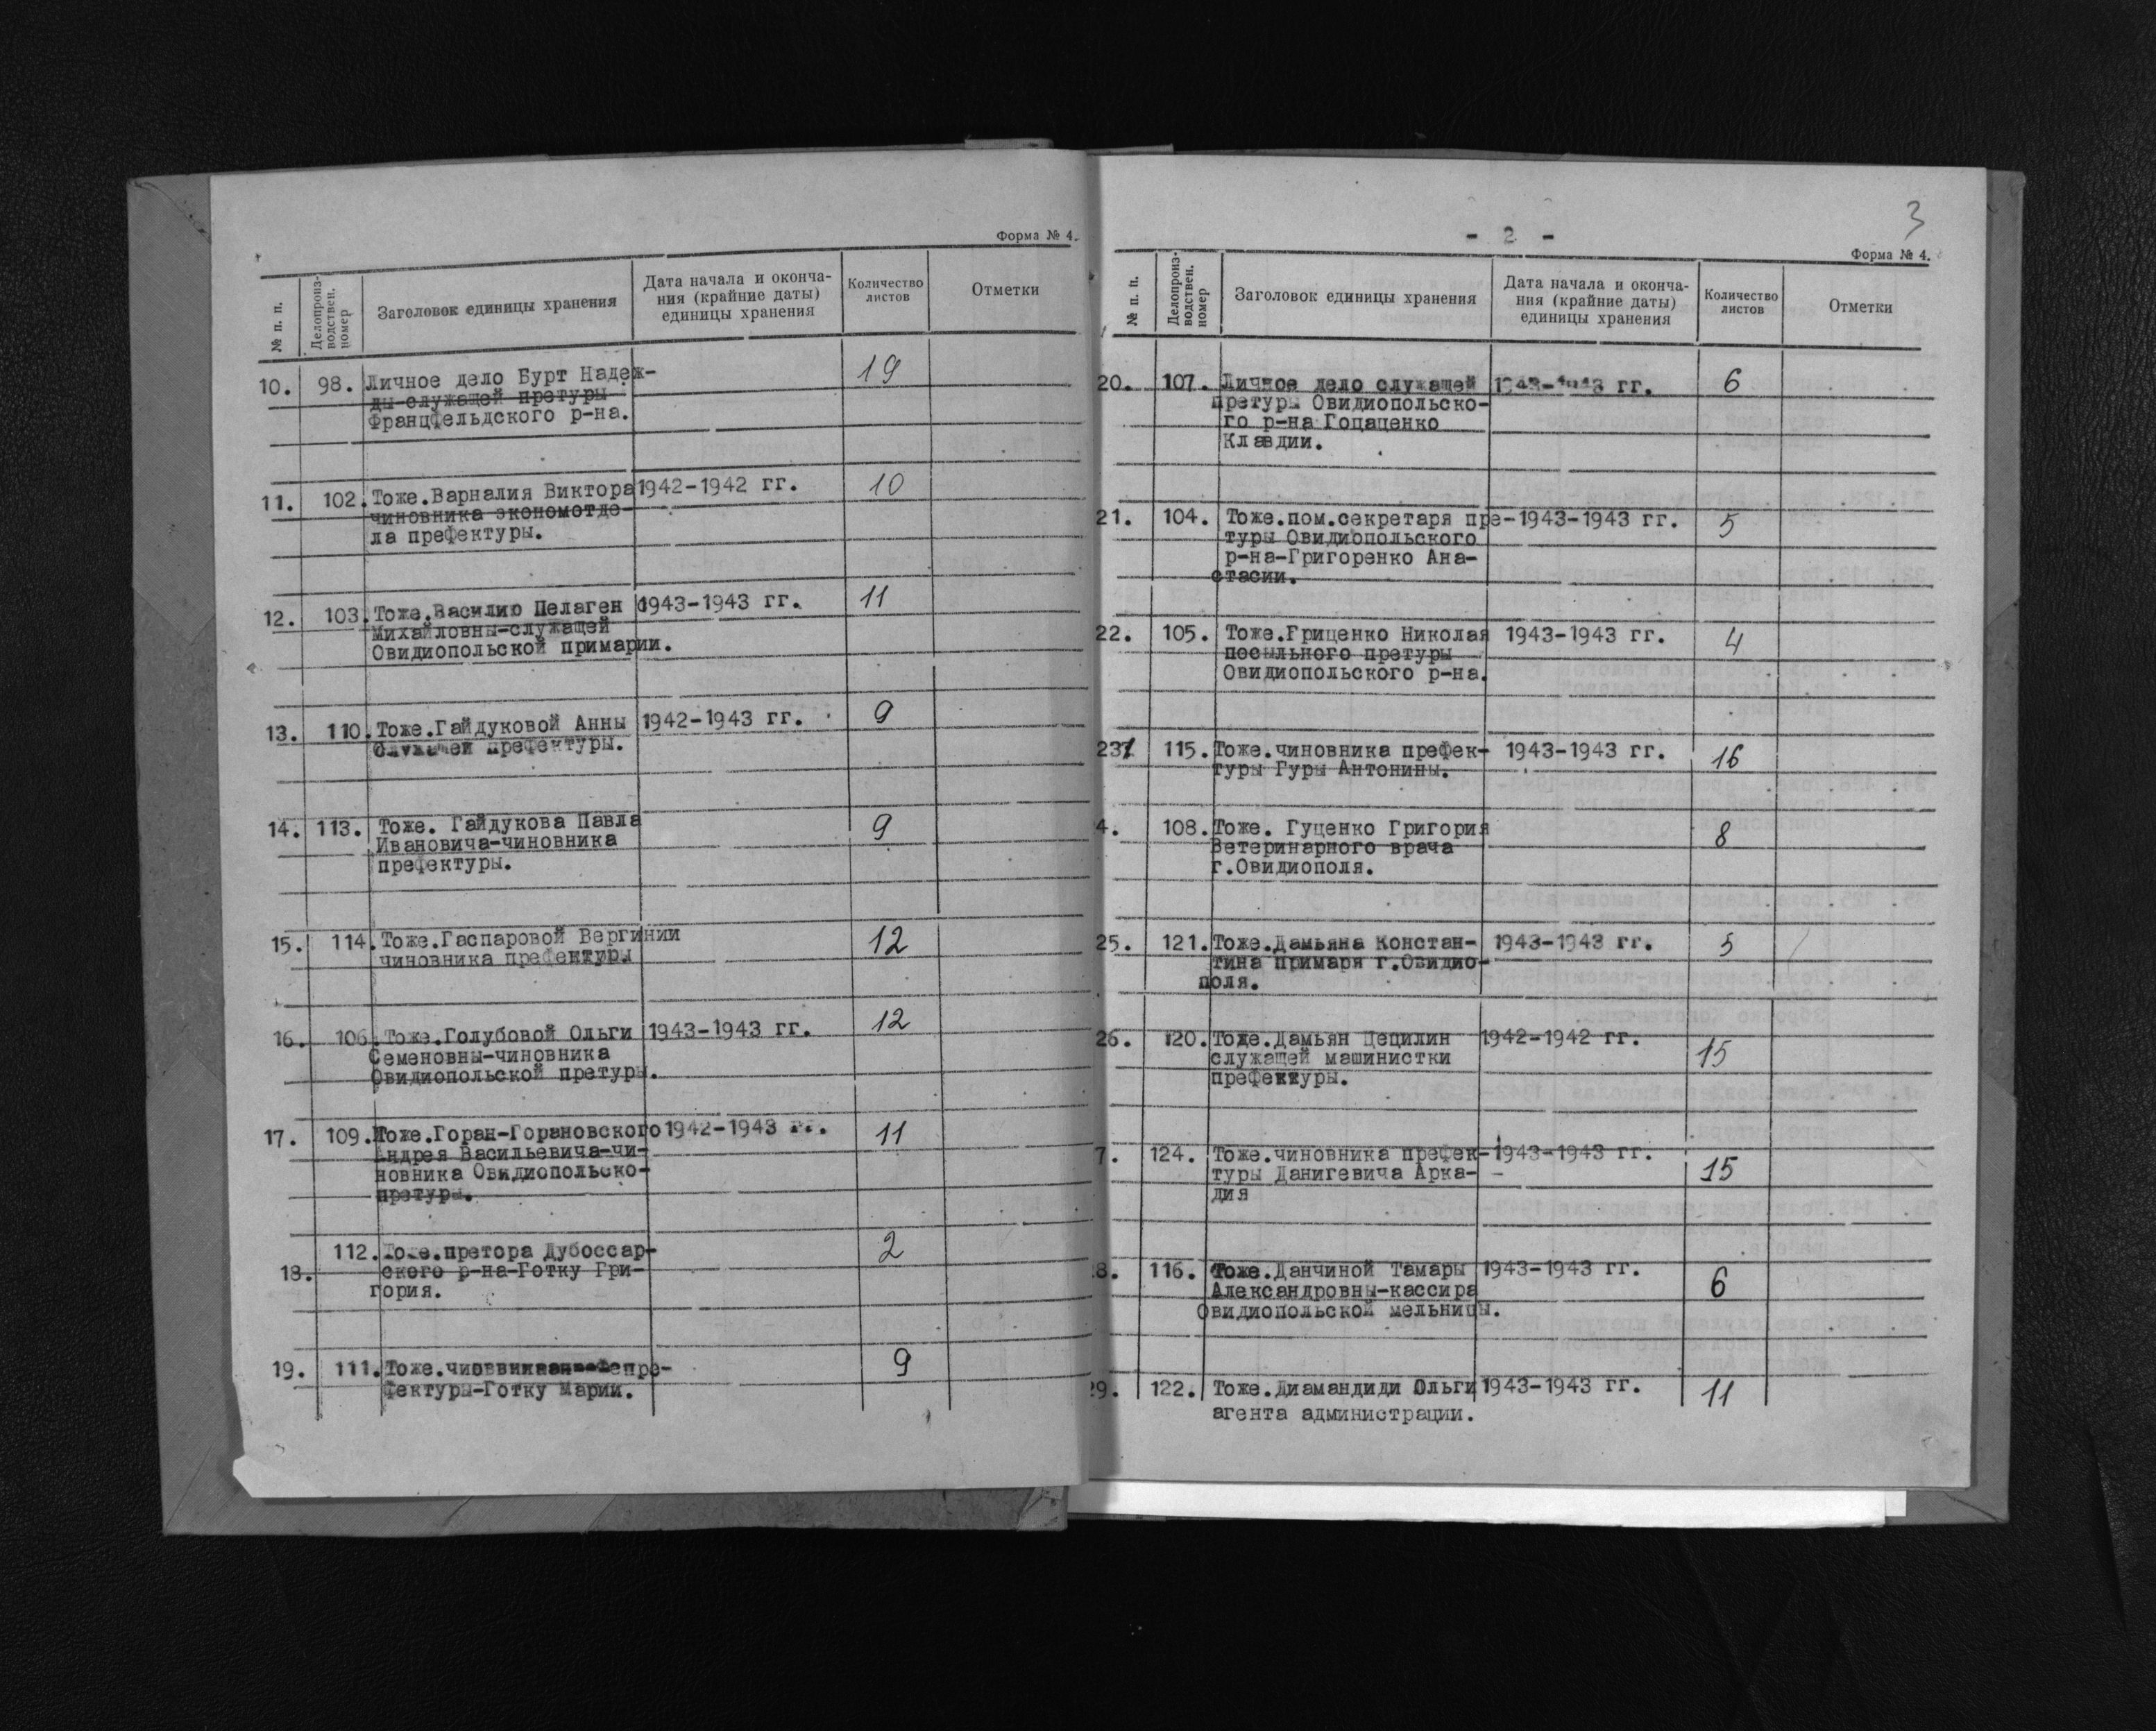 Форма № 4.
№ п. п.
Делопроиз-
водствен.
номер
Заголовок единицы хранения
Дата начала и оконча-
ния (крайние даты)
единицы хранения
Количество
листов
Отметки
10. 98. Личное дело Бурт Надеж- 19
ды-служащей претуры
Францфельдского р-на.
11. 102. Тоже.Варналия Виктора 1942-1942 гг. 10
чиновника экономотде-
ла префектуры.
12. 103. Тоже.Василию Пелаген 1943-1943 гг. 11
Михайловны-служащей
Овидиопольской примарии.
13. 110. Тоже.Гайдуковой Анны 1942-1943 гг. 9
Служачей префектуры.
14. 113. Тоже. Гайдукова Павла 9
Ивановича-чиновника
префектуры.
15. 114. Тоже.Гаспаровой Вергинии 12
чиновника префектуры
16. 106. Тоже.Голубовой Ольги 1943-1943 гг. 12
Семеновны-чиновника
Овидиопольской претуры.
17. 109. Тоже.Горан-Горановского 1942-1943 гг. 11
Андрея Васильевича-чи-
новника Овидиопольско-
претуры.
18. 112. Тоже.претора Дубоссар- 2
ского р-на-Готку Гри-
гория.
19. 111. Тоже. пре- 9
фектуры-Готку Марии.
- 2 -
3
Форма № 4.
№ п. п.
Делопроиз-
водствен.
номер
Заголовок единицы хранения
Дата начала и оконча-
ния (крайние даты)
единицы хранения
Количество
листов
Отметки
20. 107. Личное дело служащей 1943-1943 гг. 6
претуры Овидиопольско-
го р-на Гоцаценко
Клавдии.
21. 104. Тоже.пом.секретаря пре- 1943-1943 гг. 5
туры Овидиопольского
р-на-Григоренко Ана-
стасии.
22. 105. Тоже.Гриценко Николая 1943-1943 гг. 4
посыльного претуры
Овидиопольского р-на.
23. 115. Тоже.чиновника префек- 1943-1943 гг. 16
туры Гуры Антонины.
4. 108. Тоже. Гуценко Григория 8
Ветеринарного врача
г.Овидиополя.
25. 121. Тоже.Дамьяна Констан- 1943-1943 гг. 5
тина примаря г.Овидио-
поля.
26. 120. Тоже.Дамьян Цецилин 1942-1942 гг. 15
служащей машинистки
префектуры.
7. 124. Тоже.чиновника префек- 1943-1943 гг. 15
туры Данигевича Арка-
дия
8. 116. Тоже.Данчиной Тамары 1943-1943 гг. 6
Александровны-кассира
Овидиопольской мельницы.
29. 122. Тоже.Диамандиди Ольги 1943-1943 гг. 11
агента администрации.